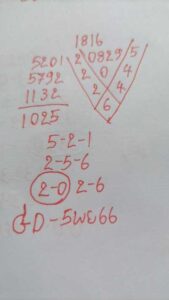 1816
5201
5792
1132
1025
2 0829 5
2 0 4
2 4
6
5-2-1
2-5-6
2-0 2-6
GD-5WE66